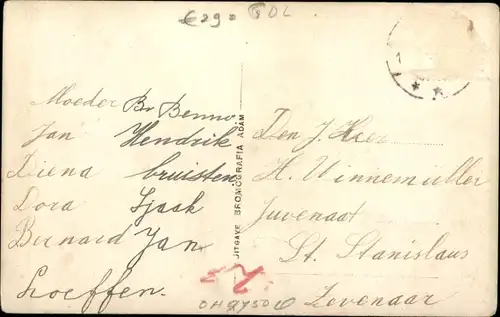 €29= BOL
Moeder Br Benno
Jan Hendrik
Diena bruisten
Dora Sjaak
Bernard Jan
Loeffen.
UITGAVE BROMOGRAFIA ADAM
Den J. Heer
H. Vinnemuller
Juvenaat
St. Stanislaus
Zevenaar